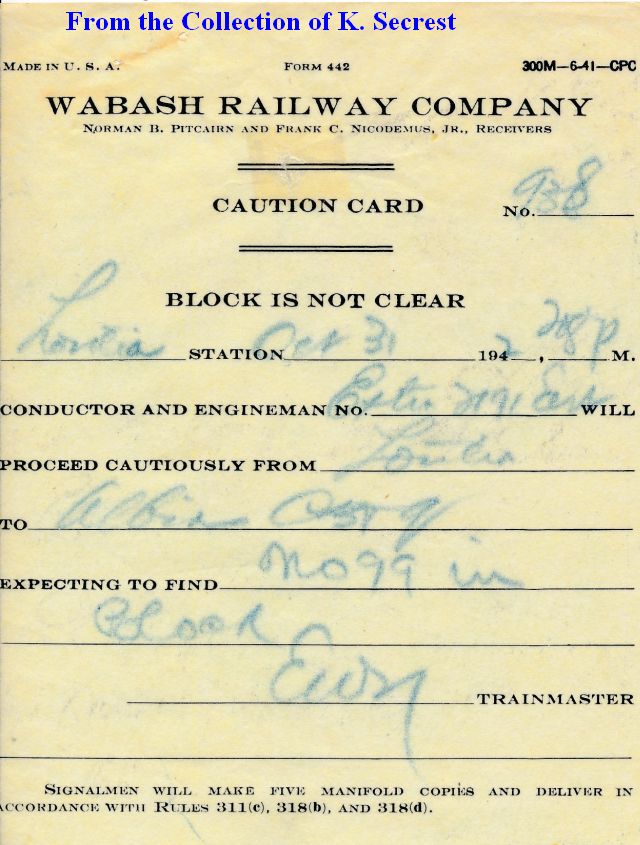 From the Collection of K. Secrest
MADE IN U. S. A. FORM 442 300M—6-41—CPC
WABASH RAILWAY COMPANY
NORMAN B. PITCAIRN AND FRANK C. NICODEMUS, JR., RECEIVERS
CAUTION CARD
NO. 938
BLOCK IS NOT CLEAR
STATION Oct 31 1942, M.
CONDUCTOR AND ENGINEMAN NO. East WILL
PROCEED CAUTIOUSLY FROM
TO Albia
EXPECTING TO FIND No 99 in
Block
TRAINMASTER
SIGNALMEN WILL MAKE FIVE MANIFOLD COPIES AND DELIVER IN
ACCORDANCE WITH RULES 311(c), 318(b), AND 318(d).